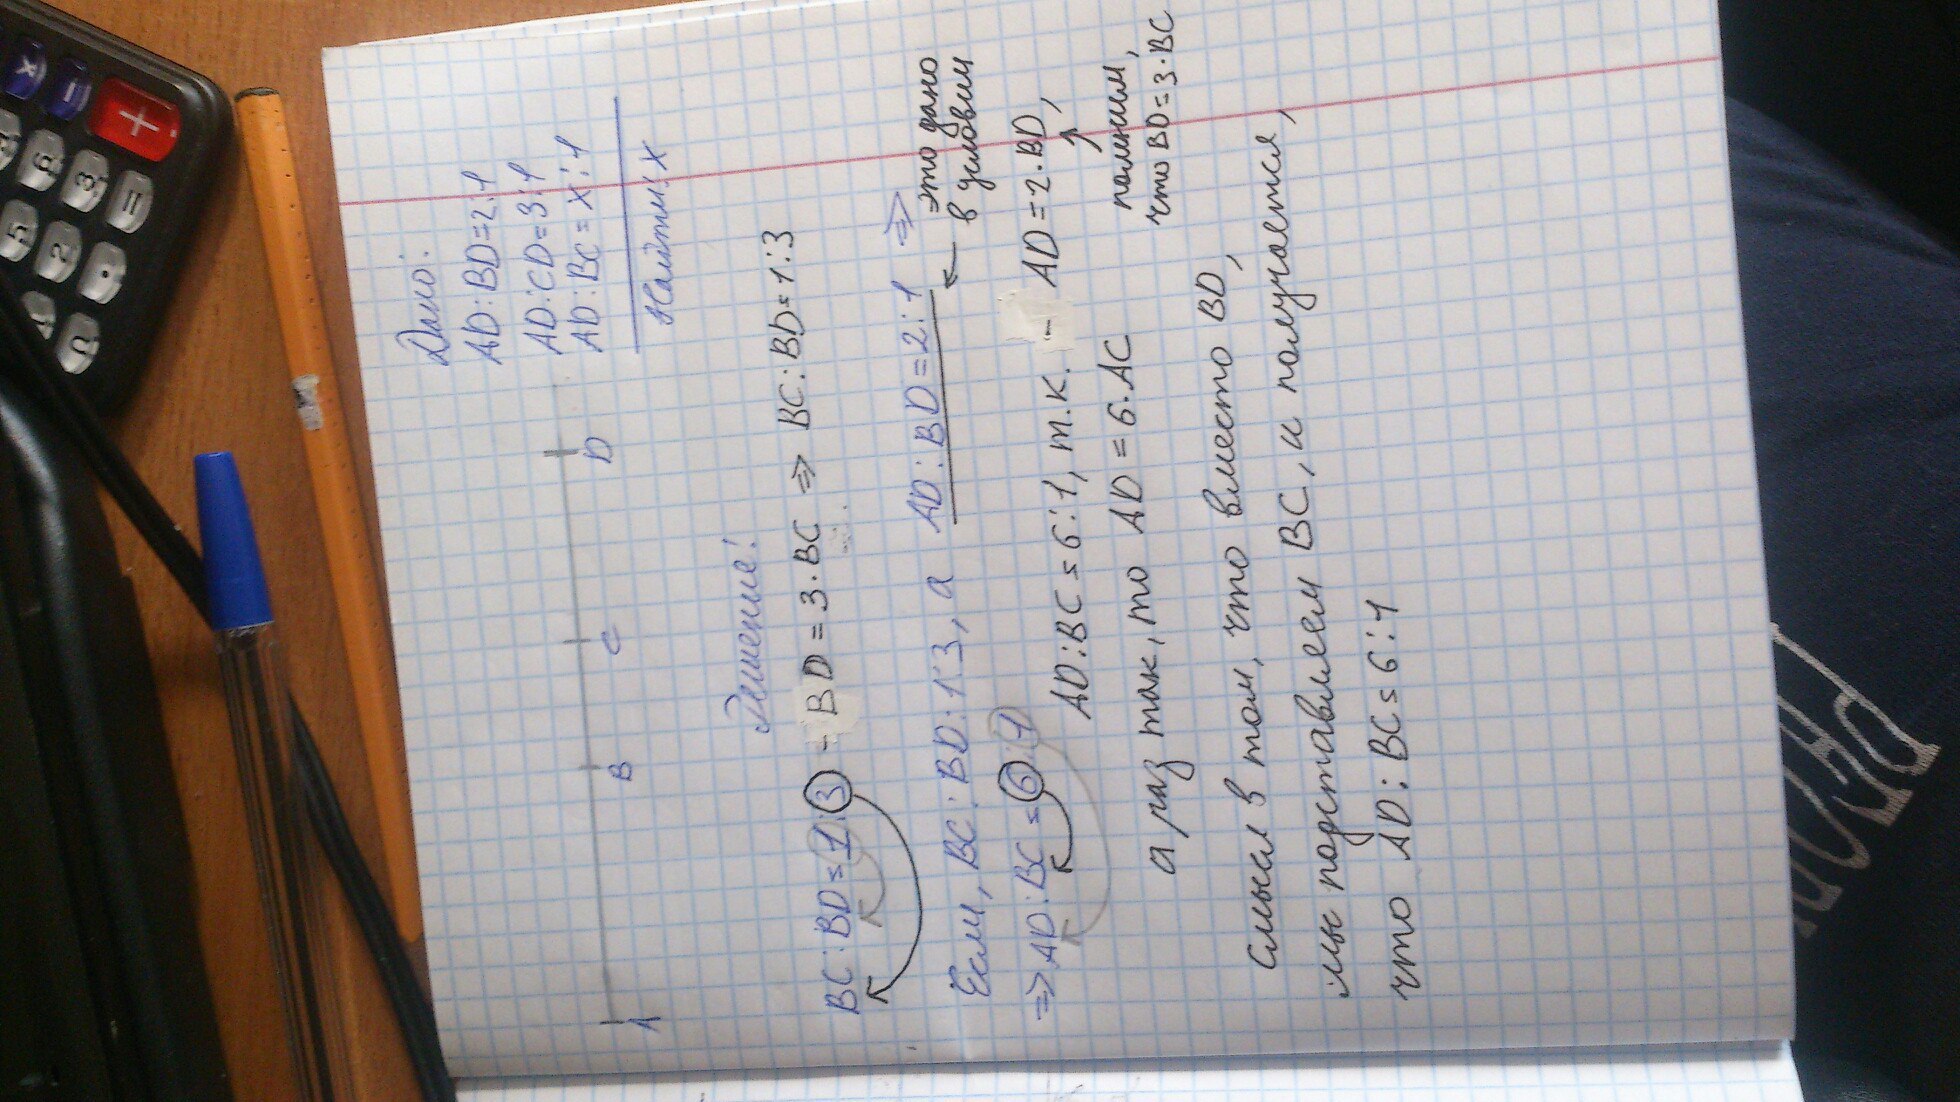 Дано:
AD:BD=2:1
AD:CD=3:1
AD:BC=x:1
Найти: x
A B C D
Решение:
BC:BD=1:3 - BD=3·BC ⇒ BC:BD=1:3
Если, BC:BD:1:3, а AD:BD=2:1 ⇒
← это дано
в условии
⇒ AD:BC=6:1
AD:BC=6:1, т.к. - AD=2·BD,
помним,
что BD=3·BC
а раз так, то AD=6·AC
Смысл в том, что вместо BD,
мы подставляем BC, и получается,
что AD:BC=6:1